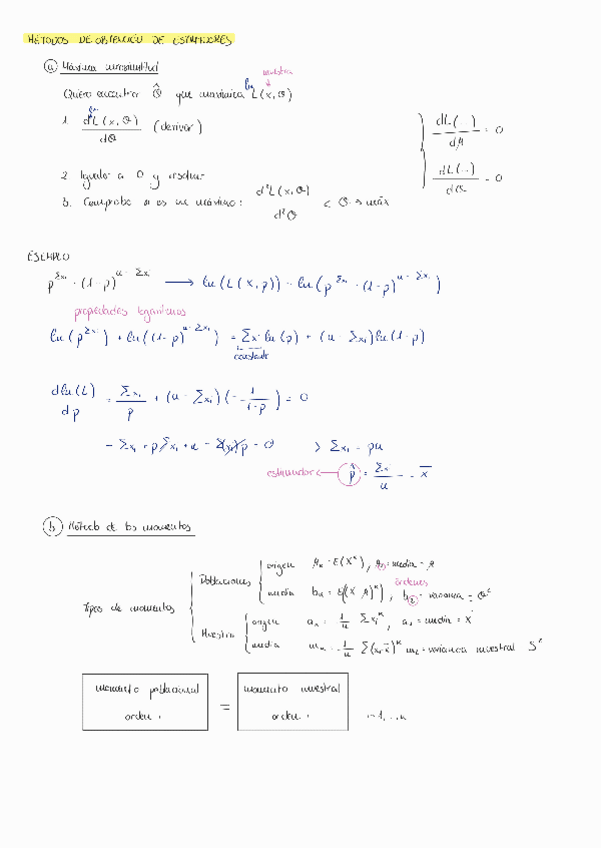 MÉTODOS DE OBTENCIÓN DE ESTIMADORES
a) Máxima verosimilitud
muestra
Quiero encontrar θ̂ que maximiza ln L(x, θ)
1. d ln L(x, θ) / dθ (derivar)
dL(...) / dμ = 0
dL(...) / dθ = 0
2. Igualar a 0 y resolver
3. Comprobar si es un máximo: d²L(x, θ) / d²θ < 0 → máx
EJEMPLO
p^Σxi · (1-p)^(n-Σxi) → ln(L(x,p)) = ln(p^Σxi · (1-p)^(n-Σxi))
propiedades logaritmos
ln(p^Σxi) + ln((1-p)^(n-Σxi)) = Σxi ln(p) + (n-Σxi) ln(1-p)
constante
d ln(L) / dp = Σxi / p + (n-Σxi)(-1/(1-p)) = 0
estimador ← p̂ = Σxi / n = x̄
b) Método de los momentos
Tipos de momentos
Poblaciones
origen, media = μ
órdenes
media, varianza = σ²
Muestra
origen aₖ = 1/n Σxi^k, a₁ = media = x̄
media mₖ = 1/n Σ(xi-x̄)^k m₂ = varianza muestral S²
momento poblacional
orden
=
momento muestral
orden